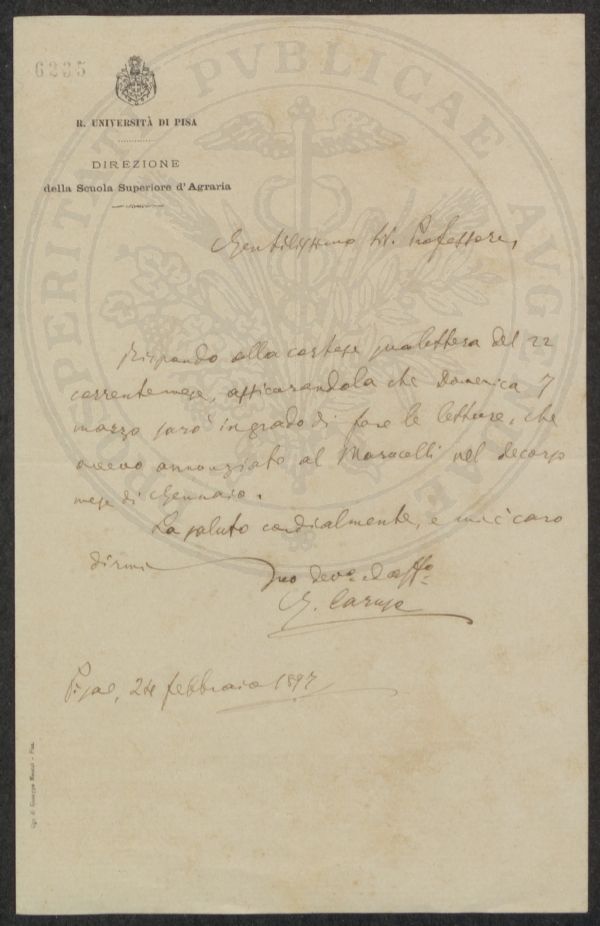 6235
R. UNIVERSITÀ DI PISA
DIREZIONE
della Scuola Superiore d'Agraria
Gentilissimo Sr. Professore,
Rispondo alla cortese sua lettera del 22
corrente mese, assicurandola che Domenica 7
marzo sarò in grado di fare le letture, che
avevo annunziate al Marucelli nel decorso
mese di Gennaio.
La saluto cordialmente, e mi è caro
dirmi
Suo devo. ed affo.
G. Caruso
Pisa, 24 febbraio 1897
PROSPERITATI PVBLICAE AVGENDAE